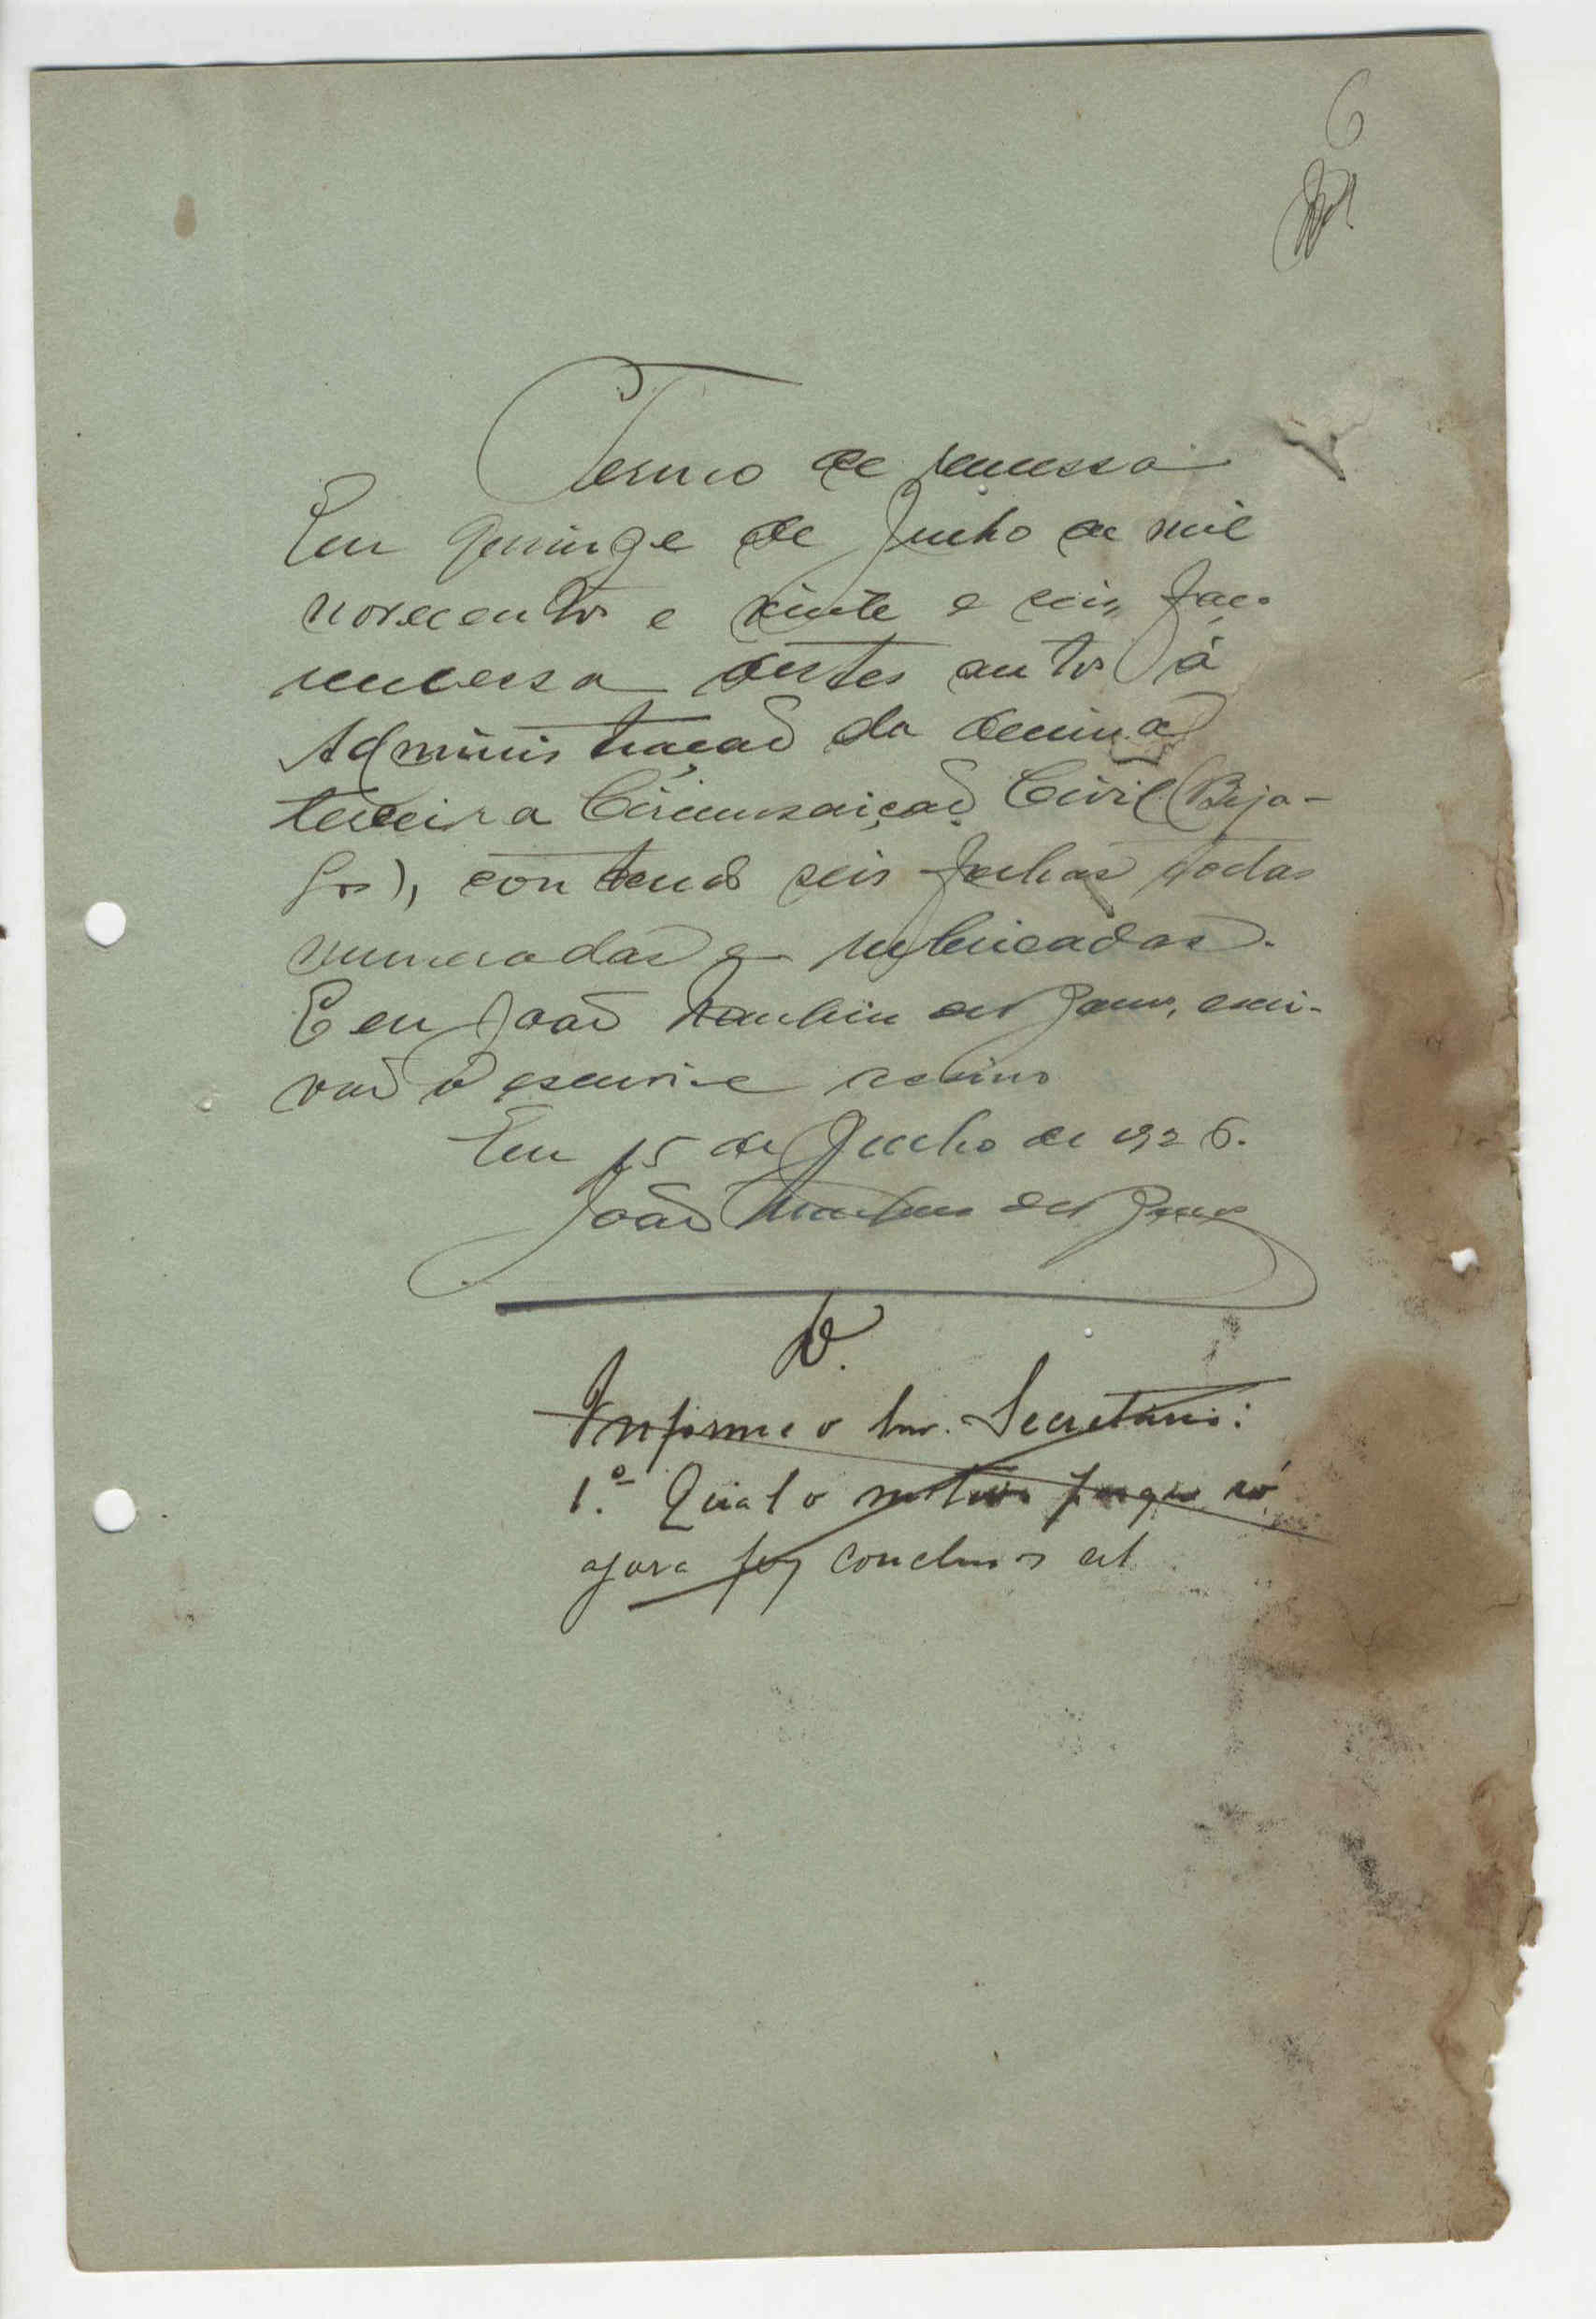 6
Termo de remessa
Em quinze de Junho de mil
novecentos e vinte e seis faço
remessa destes autos á
Administração da decima
terceira Circumscrição Civil (Bija-
gos), contendo seis folhas todas
numeradas e rubricadas.
E eu João Martins dos, escri-
vão o escrevi e assino
Em 15 de Junho de 1926.
João Martins dos
D.
Informe o Snr. Secretário:
1.º Qual o motivo porque só
agora fez conclusos est